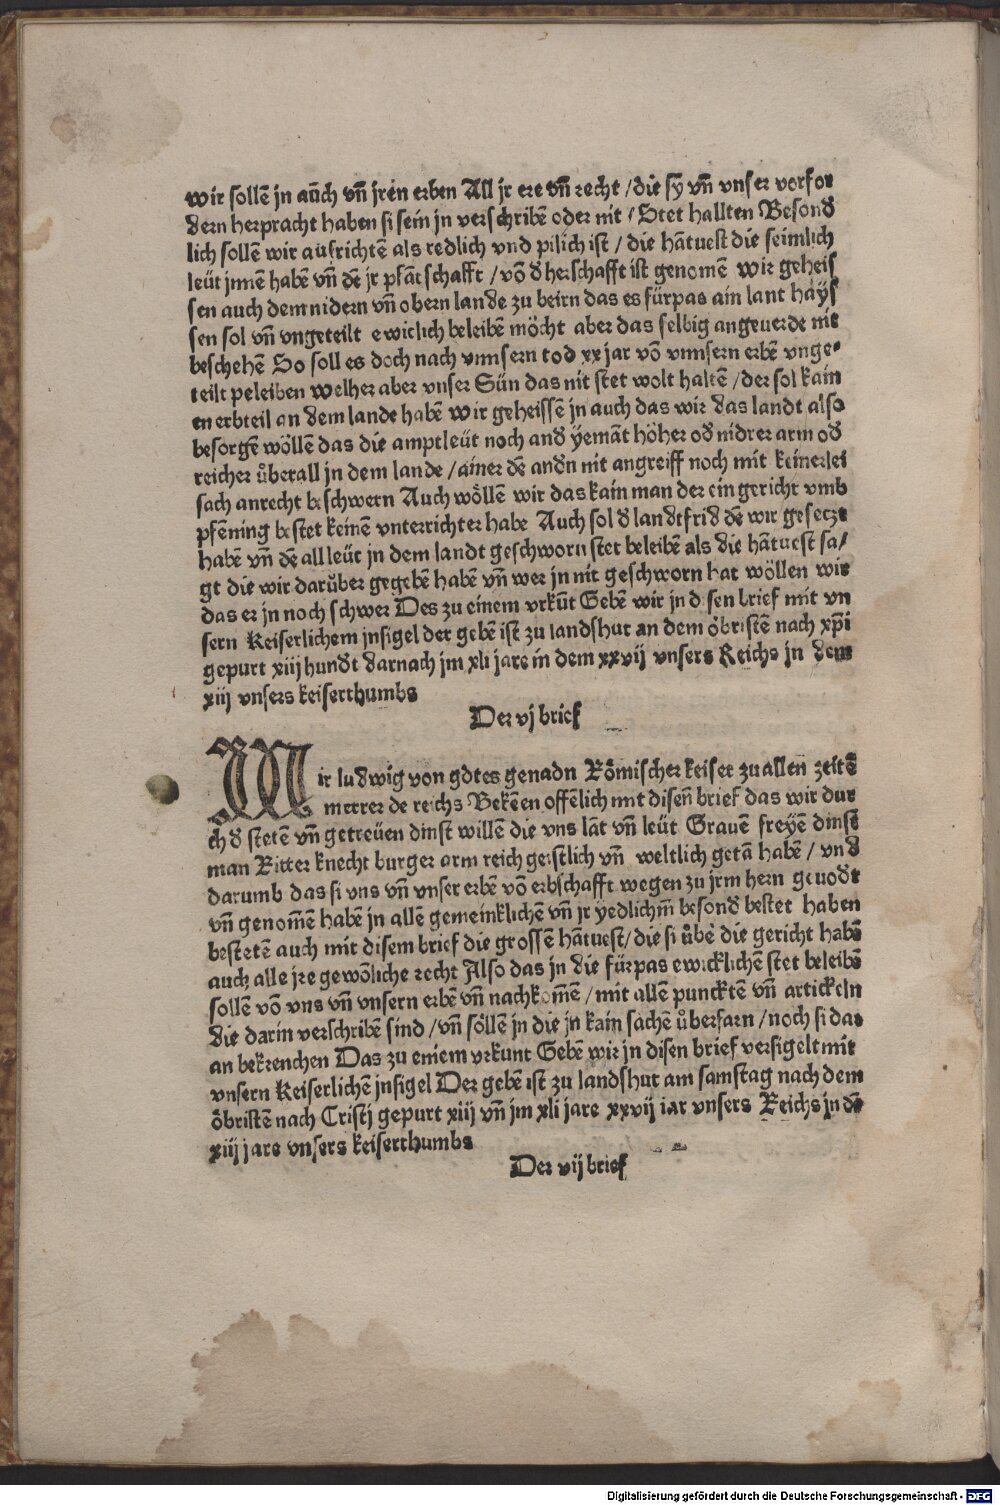 wir sollẽ jn aũch vñ jren erben All jr ere vñ recht /die sÿ vñ vnser vorfor
dern herpracht haben si sein jn verschribẽ oder nit / Stet hallten Besond
lich sollẽ wir aufrichtẽ als redlich vnd pilich ist / die hãtuest die seimlich
leüt jnnen habẽ vñ dẽ jr pfãt schafft / võ d herschafft ist genomẽ wir geheis
sen auch dem nidern vñ obern lande zu beirn das es fürpas ain lant haÿs
sen sol vñ vngeteilt ewiclich beleibẽ möcht aber das selbig angeuerde nit
beschehẽ So soll es doch nach vnnsern tod xx jar võ vnnsern erbẽ vnge-
teilt peleiben welher aber vnser Sün das nit stet wolt haltẽ /der sol kain
en erbteil an dem lande habẽ wir geheissẽ jn auch das wir das landt also
besorgẽ wöllẽ das die amptleüt noch and ÿemãt höher od nidrer arm od
reicher ůberall jn dem lande /ainer dẽ andn nit angreiff noch mit keinerlei
sach anrecht beschwern Auch wöllẽ wir das kain man der ein gericht vmb
pfẽning bestet keinẽ vnterrichter habe Auch sol d landtfrid dẽ wir gesetzt
habẽ vñ dẽ all leüt jn dem landt geschworn stet beleibẽ als die hãtuest sa/
gt die wir darůber gegebẽ habẽ vñ wer jn nit geschworn hat wöllen wir
das er jn noch schwer Des zu einem vrkũt Gebẽ wir jn disen brief mit vn
sern Keiserlichem jnsigel der gebẽ ist zu landshut an dem öbristẽ nach xp̃i
gepurt xiij hundt darnach jm xli jare in dem xxvij vnsers Reichs jn dem
xiij vnsers keiserthumbs
Der vj brief
Wir ludwig von gotes genadn Römischer keiser zu allen zeitẽ
merer de reichs Bekẽen offẽlich mit disen brief das wir dur
ch d stetẽ vñ getreüen dinst willen die vns lãt vñ leüt Grauẽ freyẽ dinst
man Ritter knecht burger arm reich geistlich vñ weltlich getã habẽ / vnd
darumb das si vns vñ vnser erbẽ võ erbschafft wegen zu jrm hern geuodt
vñ genom̃ẽ habẽ jn allẽ gemeinklichẽ vñ jr ÿedlichm̃ besond bestet haben
bestetẽ auch mit disem brief die grossẽ hãtuest/ die si ůbe die gericht habẽ
auch alle jre gewõliche recht Also das jn die fürpas ewicklichẽ stet beleibẽ
sollẽ võ vns vñ vnsern erbẽ vñ nachkom̃ẽ / mit allẽ punctẽ vñ artickeln
die darin verschribẽ sind /vñ söllẽ jn die jn kain sachẽ ůberfarn /noch si dar
an bekrenchen Das zu einem vrkunt Gebẽ wir jn disen brief versigelt mit
vnsern Keiserlichẽ jnsigel Der gebẽ ist zu landshut am samstag nach dem
öbristẽ nach Cristj gepurt xiij vñ jm xli jare xxvij iar vnsers Reichs jn dẽ
xiij jare vnsers keiserthumbs
Der vij brief
Digitalisierung gefördert durch die Deutsche Forschungsgemeinschaft - DFG